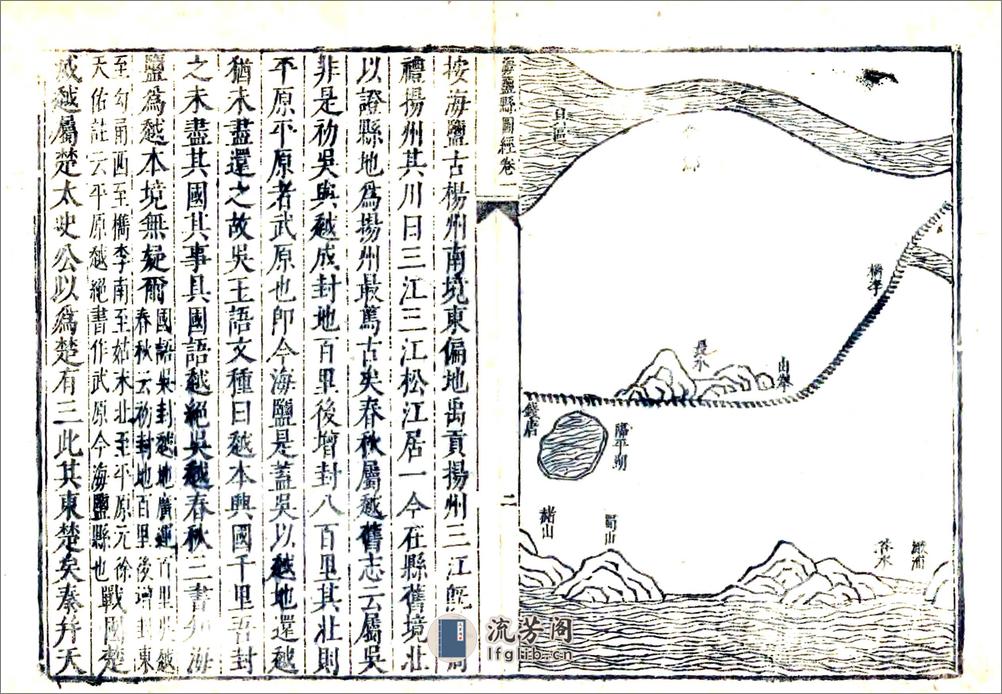 由拳
長水
山
檇李
錢唐
臨平湖
赭山
蜀山
澉浦
海鹽縣圖經卷一
二
按海鹽古揚州南境東偏地禹貢揚州三江旣周
禮揚州其川曰三江三江松江居一今在縣舊境北
以證縣地為揚州最萬古矣春秋屬越舊志云屬吳
非是初吳與越成封地百里後增封八百里其北則
平原平原者武原也卽今海鹽是蓋吳以越地還越
猶未盡還之故吳王語文種曰越本興國千里吾封
之未盡其國其事具國語越絕吳越春秋三書知海
鹽為越本境無疑爾國語吳封越地廣運百里吳越
春秋云初封地百里後增封東
至勾甬西至檇李南至姑末北至平原元徐
天佑註云平原越絕書作武原今海鹽縣也戰國楚
滅越屬楚太史公以為楚有三此其東楚矣秦幷天
流芳阁
lfglib.cn